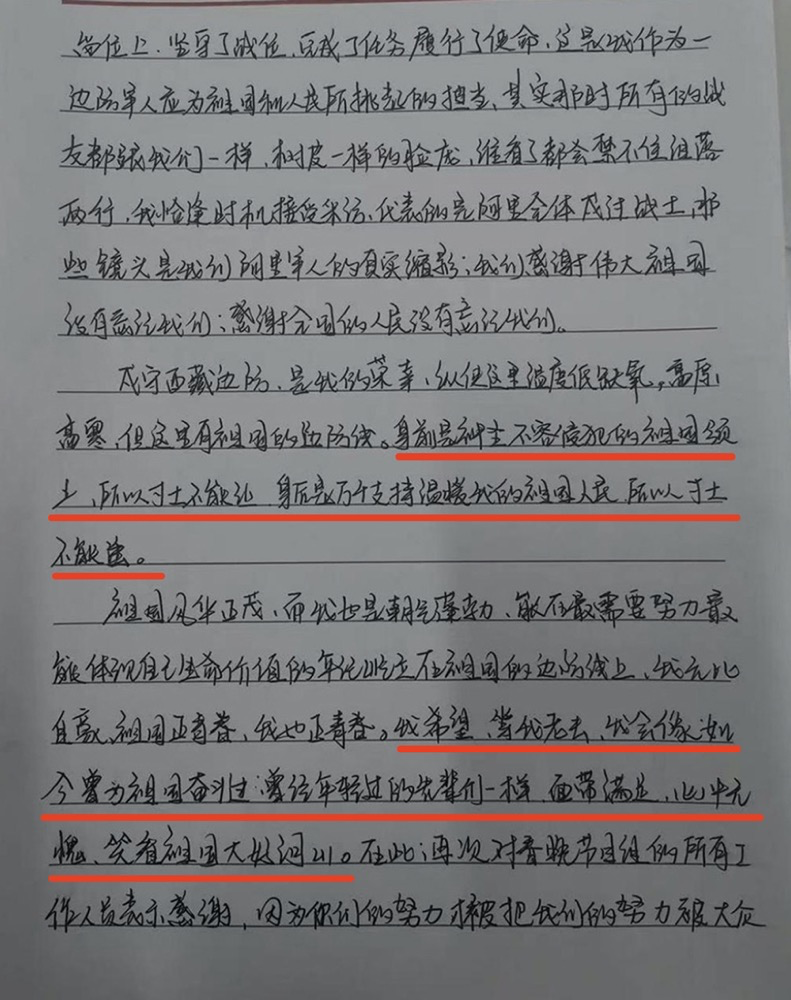 岗位上，坚守了战位，完成了任务履行了使命，这是我作为一
边防军人应为祖国和人民所挑起的担当，其实那时所有的战
友都跟我们一样，树皮一样的脸庞，谁看了都会禁不住泪落
两行，我恰逢时机接受采访，代表的是阿里全体戍边战士，那
些镜头是我们阿里军人的真实缩影；我们感谢伟大祖国
没有忘记我们；感谢全国的人民没有忘记我们。
戍守西藏边防，是我的荣幸，纵使这里温度低缺氧，高原
高寒，但这里有祖国的边防线。身前是神圣不容侵犯的祖国领
土，所以寸土不能让，身后是万千支持温暖我的祖国人民，所以寸土
不能丢。
祖国风华正茂，而我也是朝气蓬勃，能在最需要努力最
能体现自己生命价值的年纪屹立在祖国的边防线上，我无比
自豪，祖国正青春，我也正青春。我希望，当我老去，我会像如
今曾为祖国奋斗过；曾经年轻过的先辈们一样，面带满足，心中无
愧，笑看祖国大好河山。在此；再次对春晚节目组的所有工
作人员表示感谢，因为你们的努力才被把我们的努力被大众